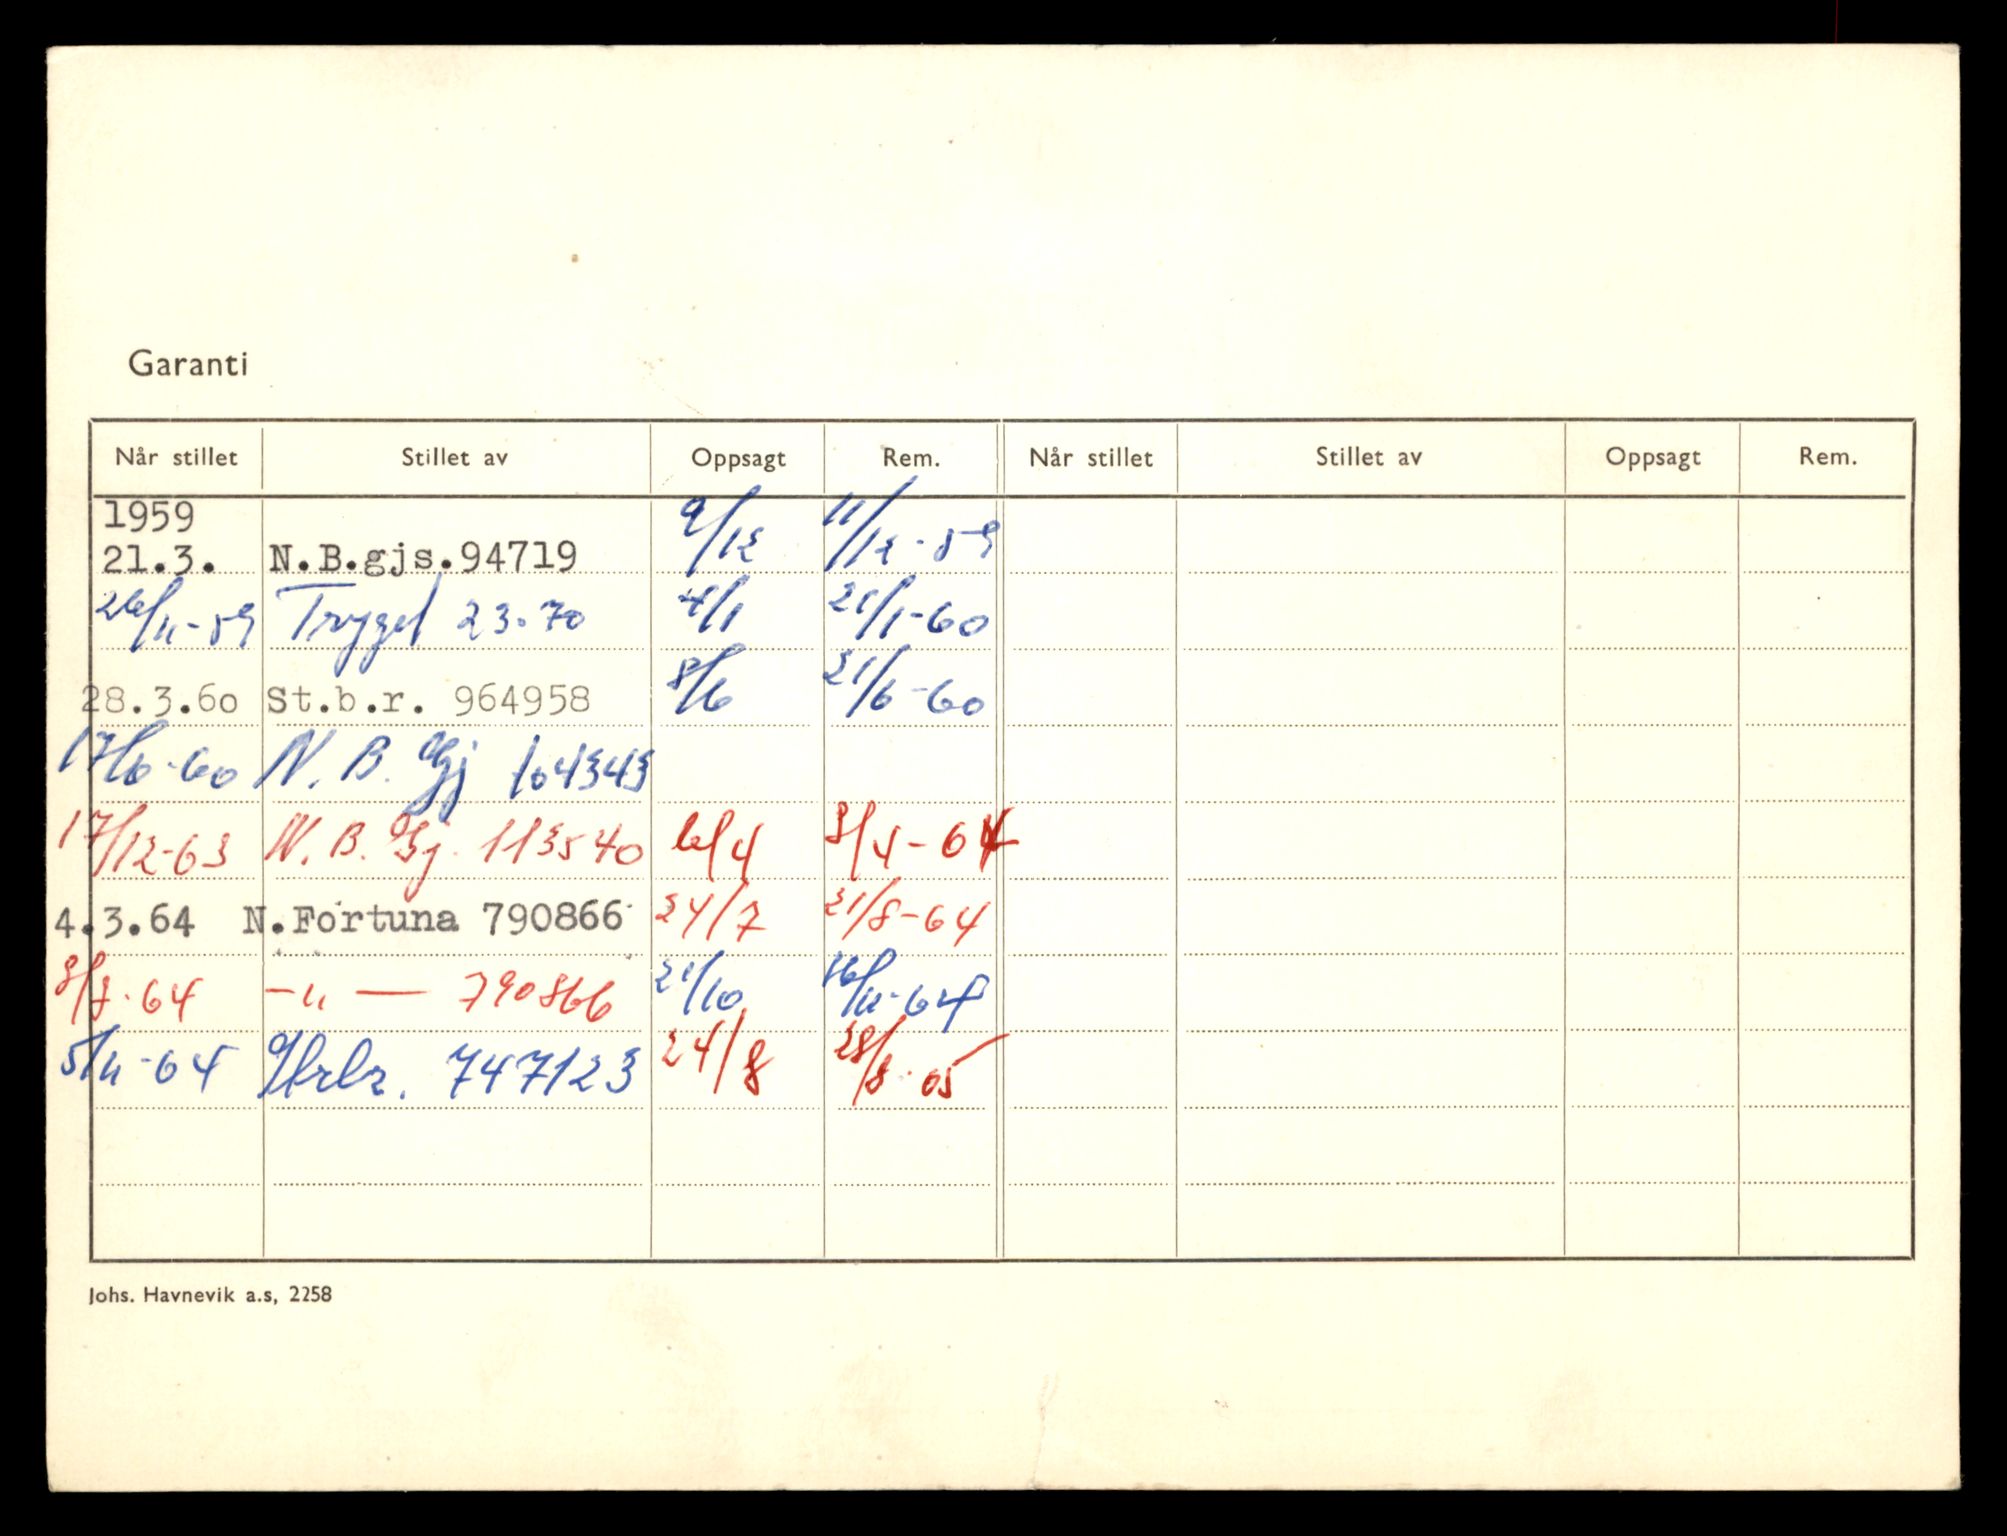 Garanti
Når stillet Stillet av Oppsagt Rem. Når stillet Stillet av Oppsagt Rem.
1959
21.3. N.B.gjs.94719 9/12 11/12-59
26/11-59 Trygd 23.70 4/1 21/1-60
28.3.60 St.b.r. 964958 8/6 21/6-60
17/6-60 N. B. Gj 104343
17/12-63 N. B. Gj. 113540 6/4 8/4-64
4.3.64 N.Fortuna 790866 24/7 21/8-64
8/7-64 -"- 790866 21/10 16/11-64
5/11-64 747123 24/8 28/8-65
Johs. Havnevik a.s, 2258